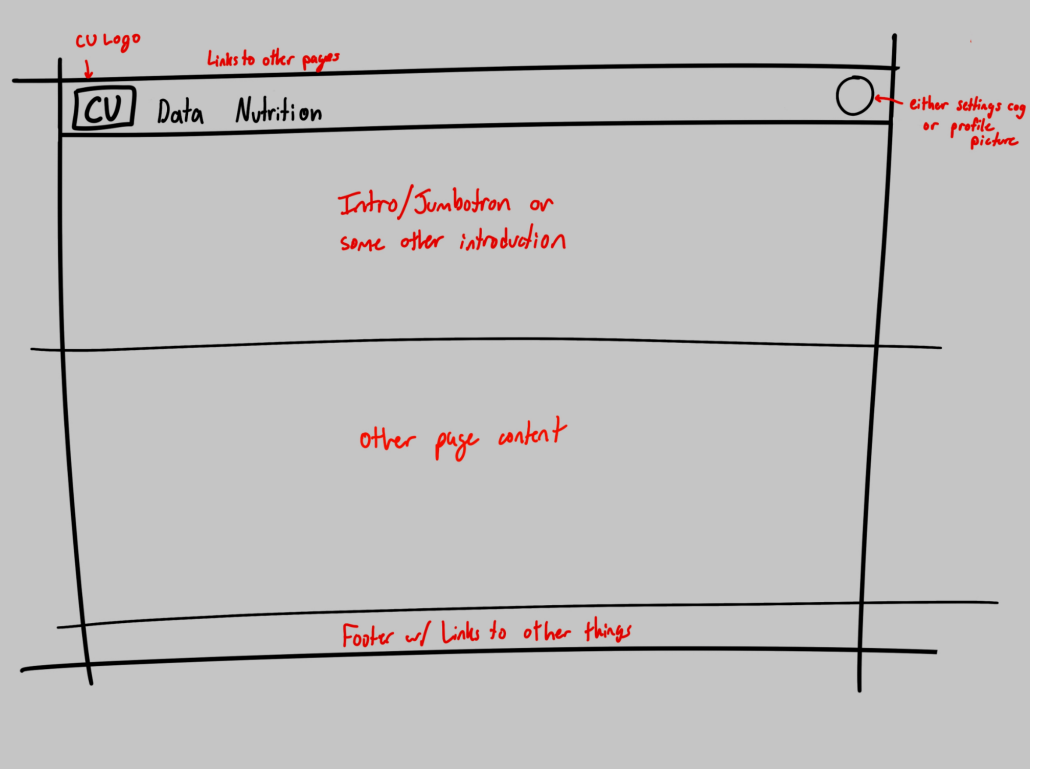 CU Logo
Links to other pages
CU Data Nutrition
either settings cog
or profile
picture
Intro/Jumbotron or
some other introduction
Other page content
Footer w/ Links to other things